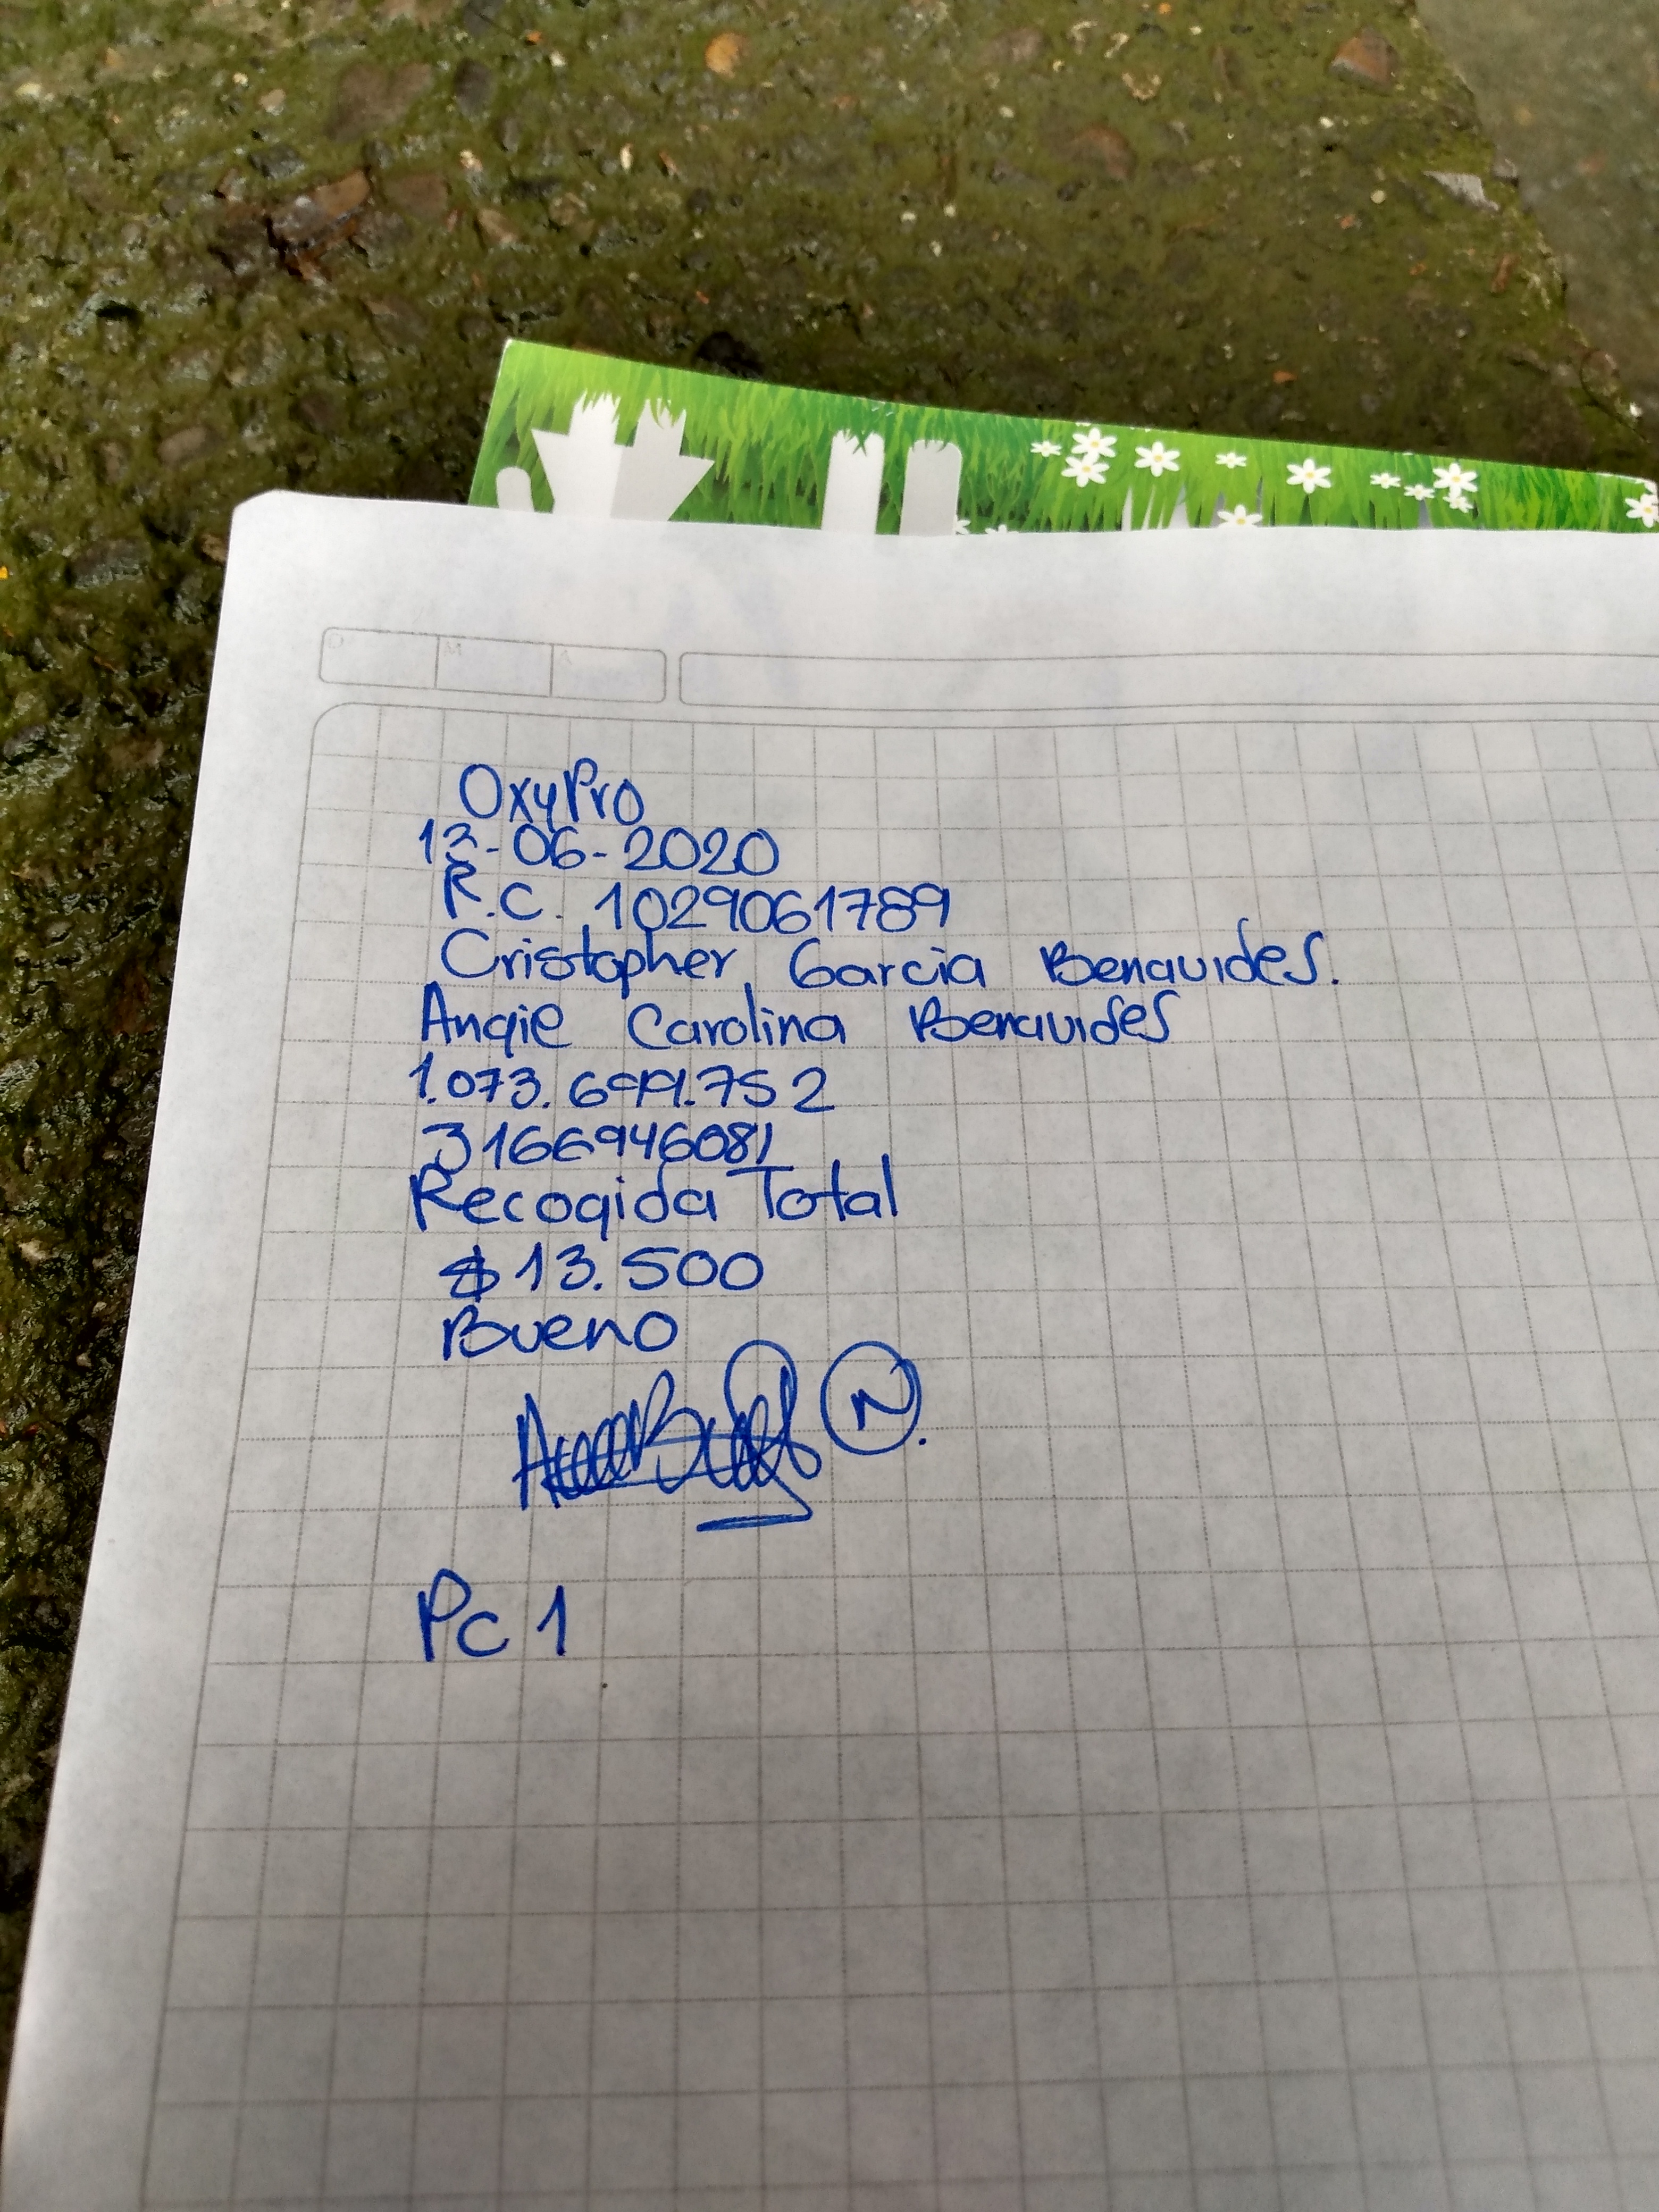 OxyPro
13-06-2020
R.C. 1029061789
Cristopher Garcia Benavides.
Angie Carolina Benavides
1.073.699.752
3166946081
Recogida Total
$ 13.500
Bueno
N.
Pc 1